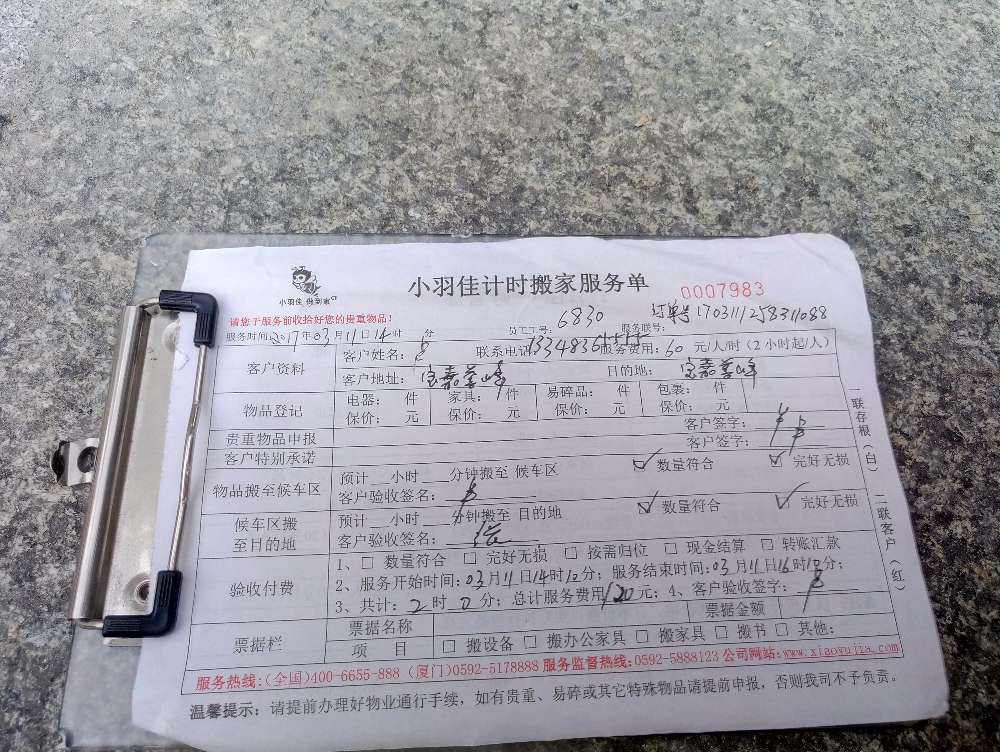 小羽佳 做到家
小羽佳计时搬家服务单 0007983
请您于服务前收拾好您的贵重物品!
服务时间:2017年03月11日14时 分 员工工号: 6830 服务联号: 订单号
客户资料 客户姓名: 联系电话: 服务费用: 60 元/人/时(2小时起/人)
客户地址: 宝嘉誉峰 目的地: 宝嘉誉峰
物品登记 电器: 件 家具: 件 易碎品: 件 包装: 件
保价: 元 保价: 元 保价: 元 保价: 元
贵重物品申报 客户签字:
客户特别承诺 客户签字:
物品搬至候车区 预计__小时___分钟搬至 候车区 ☑ 数量符合 ☑ 完好无损
客户验收签名:
候车区搬至目的地 预计__小时___分钟搬至 目的地 ☑ 数量符合 ☑ 完好无损
客户验收签名:
验收付费 1、□ 数量符合 □ 完好无损 □ 按需归位 □ 现金结算 □ 转账汇款
2、服务开始时间:03月11日14时10分; 服务结束时间:03月11日16时10分;
3、共计: 2 时 0 分; 总计服务费用 120 元; 4、客户验收签字:
票据栏 票据名称 票据金额
项 目 □ 搬设备 □ 搬办公家具 □ 搬家具 □ 搬书 □ 其他:
服务热线:(全国)400-6655-888 (厦门)0592-5178888 服务监督热线:0592-5888123 公司网站:www.xiaoyujia.com
温馨提示: 请提前办理好物业通行手续, 如有贵重、易碎或其它特殊物品请提前申报, 否则我司不予负责。
一联存根(白) 二联客户(红)